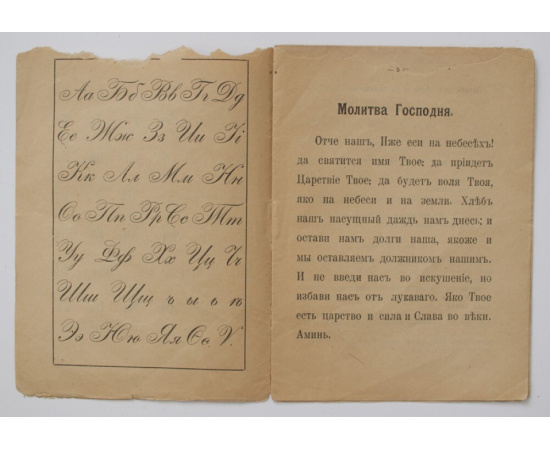 Аа Бб Вв Гг Дд
Ее Жж Зз Ии Іі
Кк Лл Мм Нн
Оо Пп Рр Сс Тт
Уу Фф Хх Цц Ч
Шш Щщ ъ ы ь ѣ
Ээ Юю Яя Ѳѳ Ѵ.
Молитва Господня.
Отче нашъ, Иже еси на небесѣхъ!
да святится имя Твое; да пріидетъ
Царствіе Твое; да будетъ воля Твоя,
яко на небеси и на земли. Хлѣбъ
нашъ насущный даждь намъ днесь; и
остави намъ долги наша, якоже и
мы оставляемъ должникомъ нашимъ.
И не введи насъ во искушеніе, но
избави насъ отъ лукаваго. Яко Твое
есть царство и сила и Слава во вѣки.
Аминь.